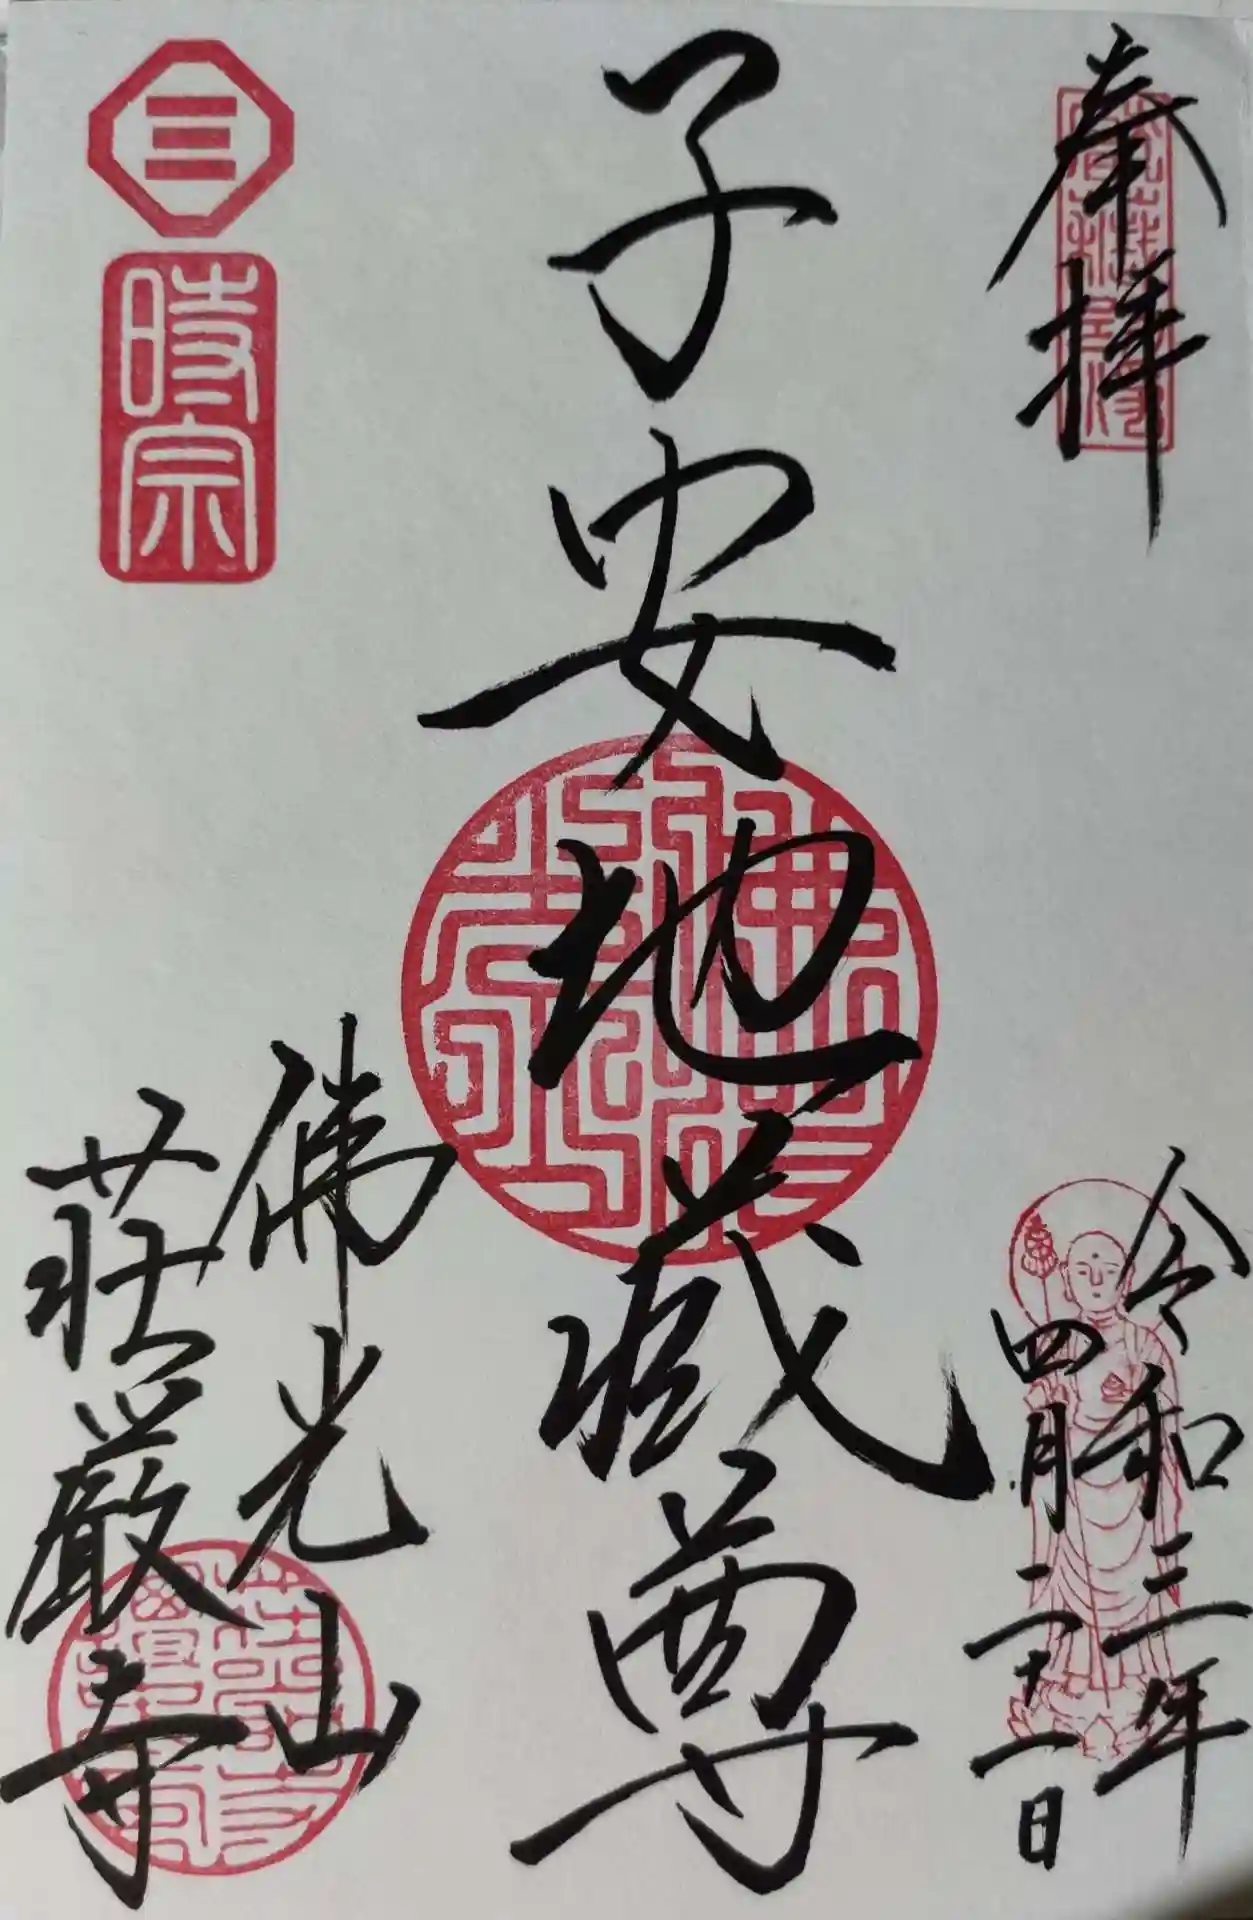 奉拝
令和三年
四月二十一日
子安地蔵尊
時宗
佛光山
荘厳寺